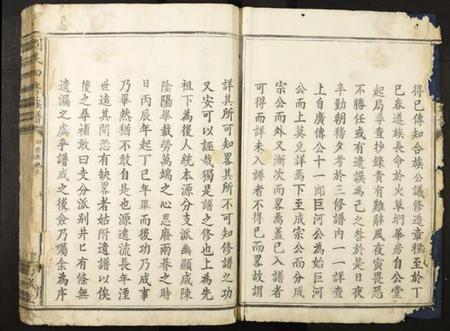 得已傳知合族公議修造章程至於丁
巳春遵族長命於火草𪣻華房自公堂
起局尋查抄錄責有難辭風夜寅畏恐
不勝任或有遺誤為己之咎於是日夜
辛勤朝稽夕考於三修譜內一一詳查
上自廣傳公十一郎巨河公為始巨河
公而上莫免詳焉下至成宗公而分成
宗公而外又漸次而畧焉蓋已入譜者
可得而詳未入譜者不得已而畧故謂
詳其所可知畧其所不可知修譜之功
又安可以誣哉獨是譜之修也上為先
祖下為後人統本源分支派幽顯咸陳
陰陽畢載勞萬端之心思廢兩春之時
日丙辰年起丁巳年畢而後功乃成事
乃畢然猶不敢自是也源遠流長年湮
世遠其間恐有缺畧者姑附遺譜以俟
後之尋補敢曰支分派別井匕有條無
遺漏之虞乎譜成之後僉乃囑余為序